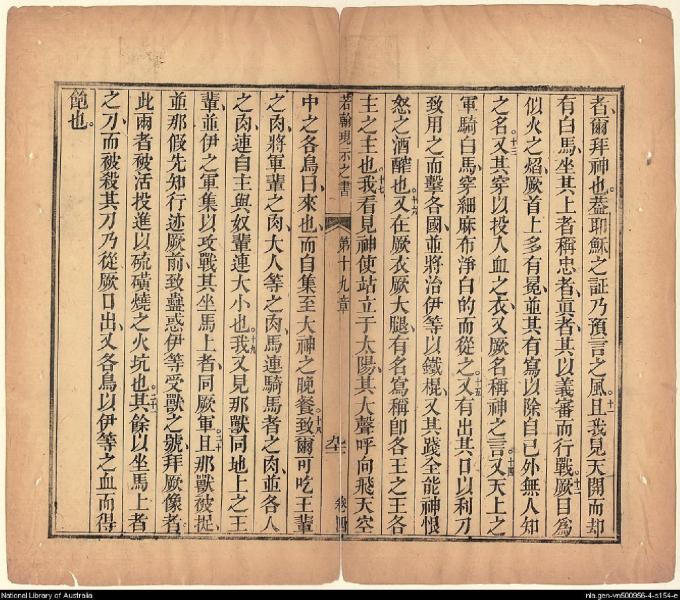 者爾拜神也。葢耶穌之証乃預言之風。十一且我見天開而却
有白馬、坐其上者稱忠者、眞者、其以義審而行戰。十二厥目為
似火之焰、厥首上多有冕、並其有寫以除自己外無人知
之名。十三又其穿以投入血之衣、又厥名稱神之言。十四又天上之
軍騎白馬、穿細麻布淨白的而從之。十五又有出其口以利刀
致用之而擊各國、並將治伊等以鐵棍、又其踐全能神恨
怒之酒醡也。十六又在厥衣厥大腿、有名寫稱卽各王之王各
主之主也。十七我看見神使站立于太陽、其大聲呼向飛天空
若翰現示之書 第十九章 卷四
中之各鳥曰、來也、而自集至大神之晚餐。十八致爾可吃王輩
之肉、將軍輩之肉、大人等之肉、馬連騎馬者之肉、並各人
之肉、連自主與奴輩連大小也。十九我又見那獸同地上之王
輩、並伊之軍集以攻戰其坐馬上者、同厥軍。二十且那獸被捉、
並那假先知行迹厥前、致蠱惑伊等受獸之號、拜厥像者。
此兩者被活投進以硫磺燒之火坑也。二十一其餘以坐馬上者
之刀而被殺、其刀乃從厥口出、又各鳥以伊等之血而得
飽也。
National Library of Australia
nla.gen-vn500956-4-s154-e